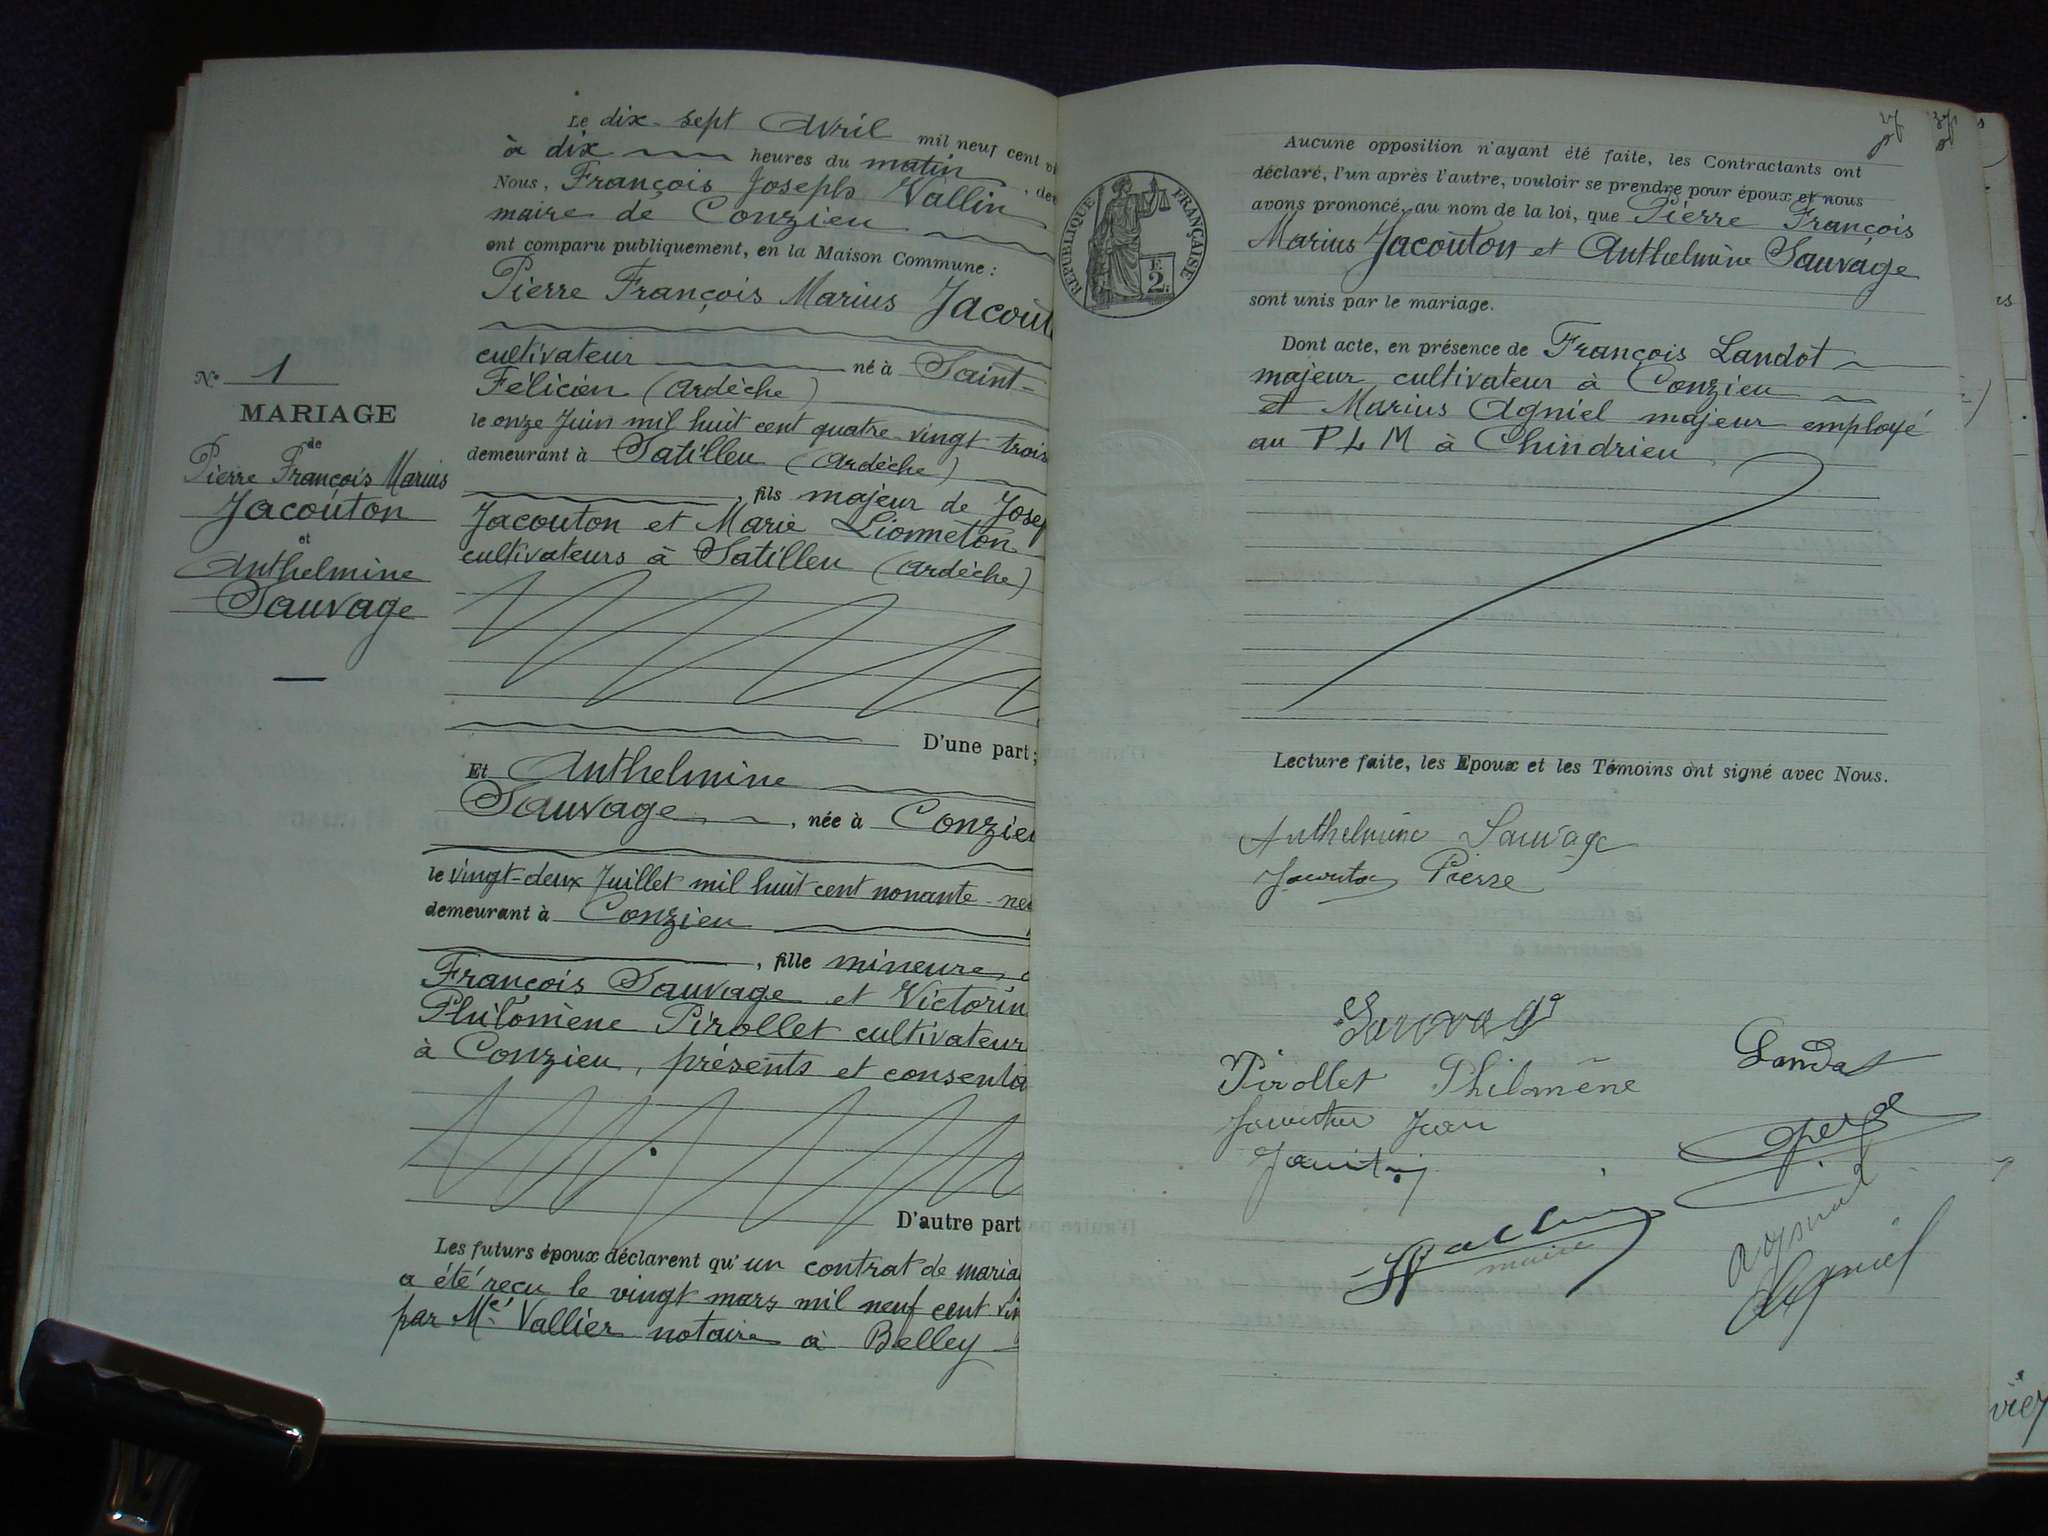 Le dix-sept Avril mil neuf cent
à dix heures du matin
Nous, François Joseph Vallin
maire de Conzieu
ont comparu publiquement, en la Maison Commune :
Pierre François Marius Jacout
cultivateur né à Saint-
Félicien (Ardèche)
le onze Juin mil huit cent quatre-vingt trois
demeurant à Satilleu (Ardèche)
, fils majeur de Josep
Jacouton et Marie Lionneton
cultivateurs à Satilleu (Ardèche)
D'une part ;
Et Anthelmine
Sauvage, née à Conzieu
le vingt-deux Juillet mil huit cent nonante-neu
demeurant à Conzieu
, fille mineure
François Sauvage et Victorin
Philomène Pirollet cultivateur
à Conzieu, présents et consenta
D'autre part
Les futurs époux déclarent qu'un contrat de maria
a été reçu le vingt mars mil neuf cent vin
par Me Vallier notaire à Belley
No 1
MARIAGE
de
Pierre François Marius
Jacouton
et
Anthelmine
Sauvage
RÉPUBLIQUE FRANÇAISE
2
Aucune opposition n'ayant été faite, les Contractants ont
déclaré, l'un après l'autre, vouloir se prendre pour époux et nous
avons prononcé, au nom de la loi, que Pierre François
Marius Jacouton et Anthelmine Sauvage
sont unis par le mariage.
Dont acte, en présence de François Landot
majeur cultivateur à Conzieu
et Marius Agniel majeur employé
au P L M à Chindrieu
Lecture faite, les Epoux et les Témoins ont signé avec Nous.
Anthelmine Sauvage
Jacouton Pierre
Sauvage
Landot
Pirollet Philomène
Jacouton Jean
Vallin
maire
Agniel